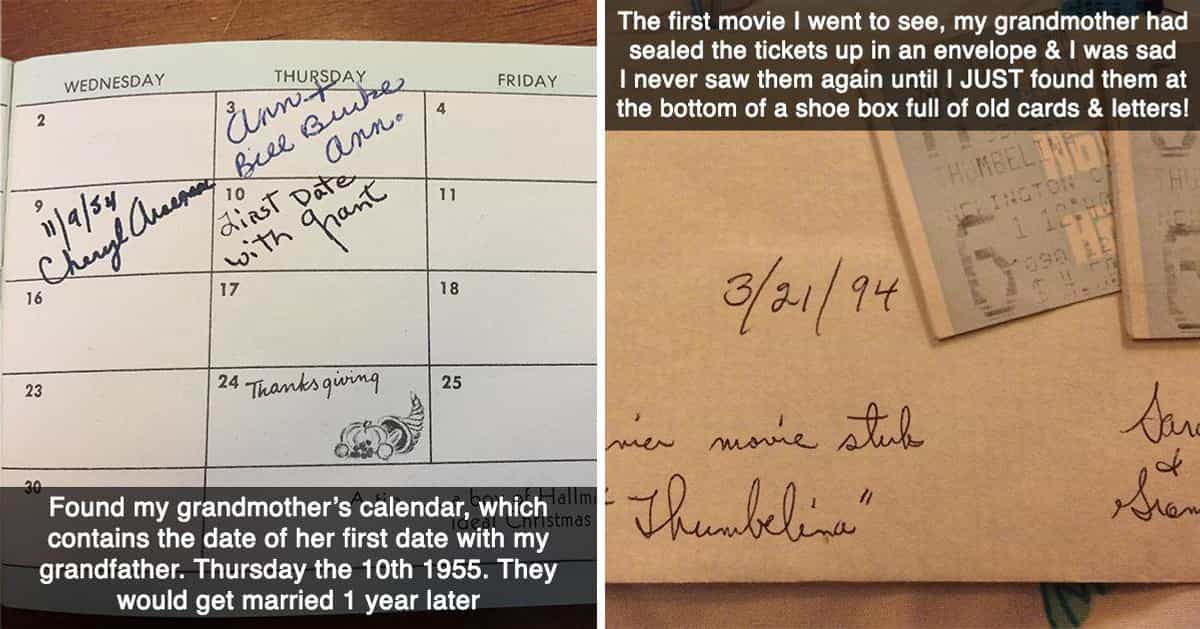 WEDNESDAY THURSDAY FRIDAY
2 3 4
Ann &
Bill Burke
Ann.
9 10 11
11/9/54
Cheryl
First Date
with Grant
16 17 18
23 24 Thanksgiving 25
30
of Hallm
ideal Christmas
Found my grandmother’s calendar, which
contains the date of her first date with my
grandfather. Thursday the 10th 1955. They
would get married 1 year later
The first movie I went to see, my grandmother had
sealed the tickets up in an envelope & I was sad
I never saw them again until I JUST found them at
the bottom of a shoe box full of old cards & letters!
THUMBELIN
3/21/94
movie stub
"Thumbelina"
&